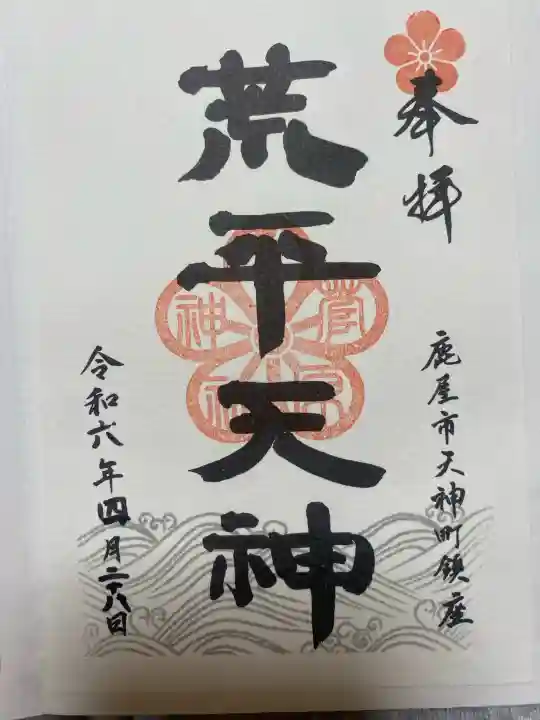 奉拝
鹿屋市天神町鎮座
荒平天神
菅原神社
令和六年四月二六日